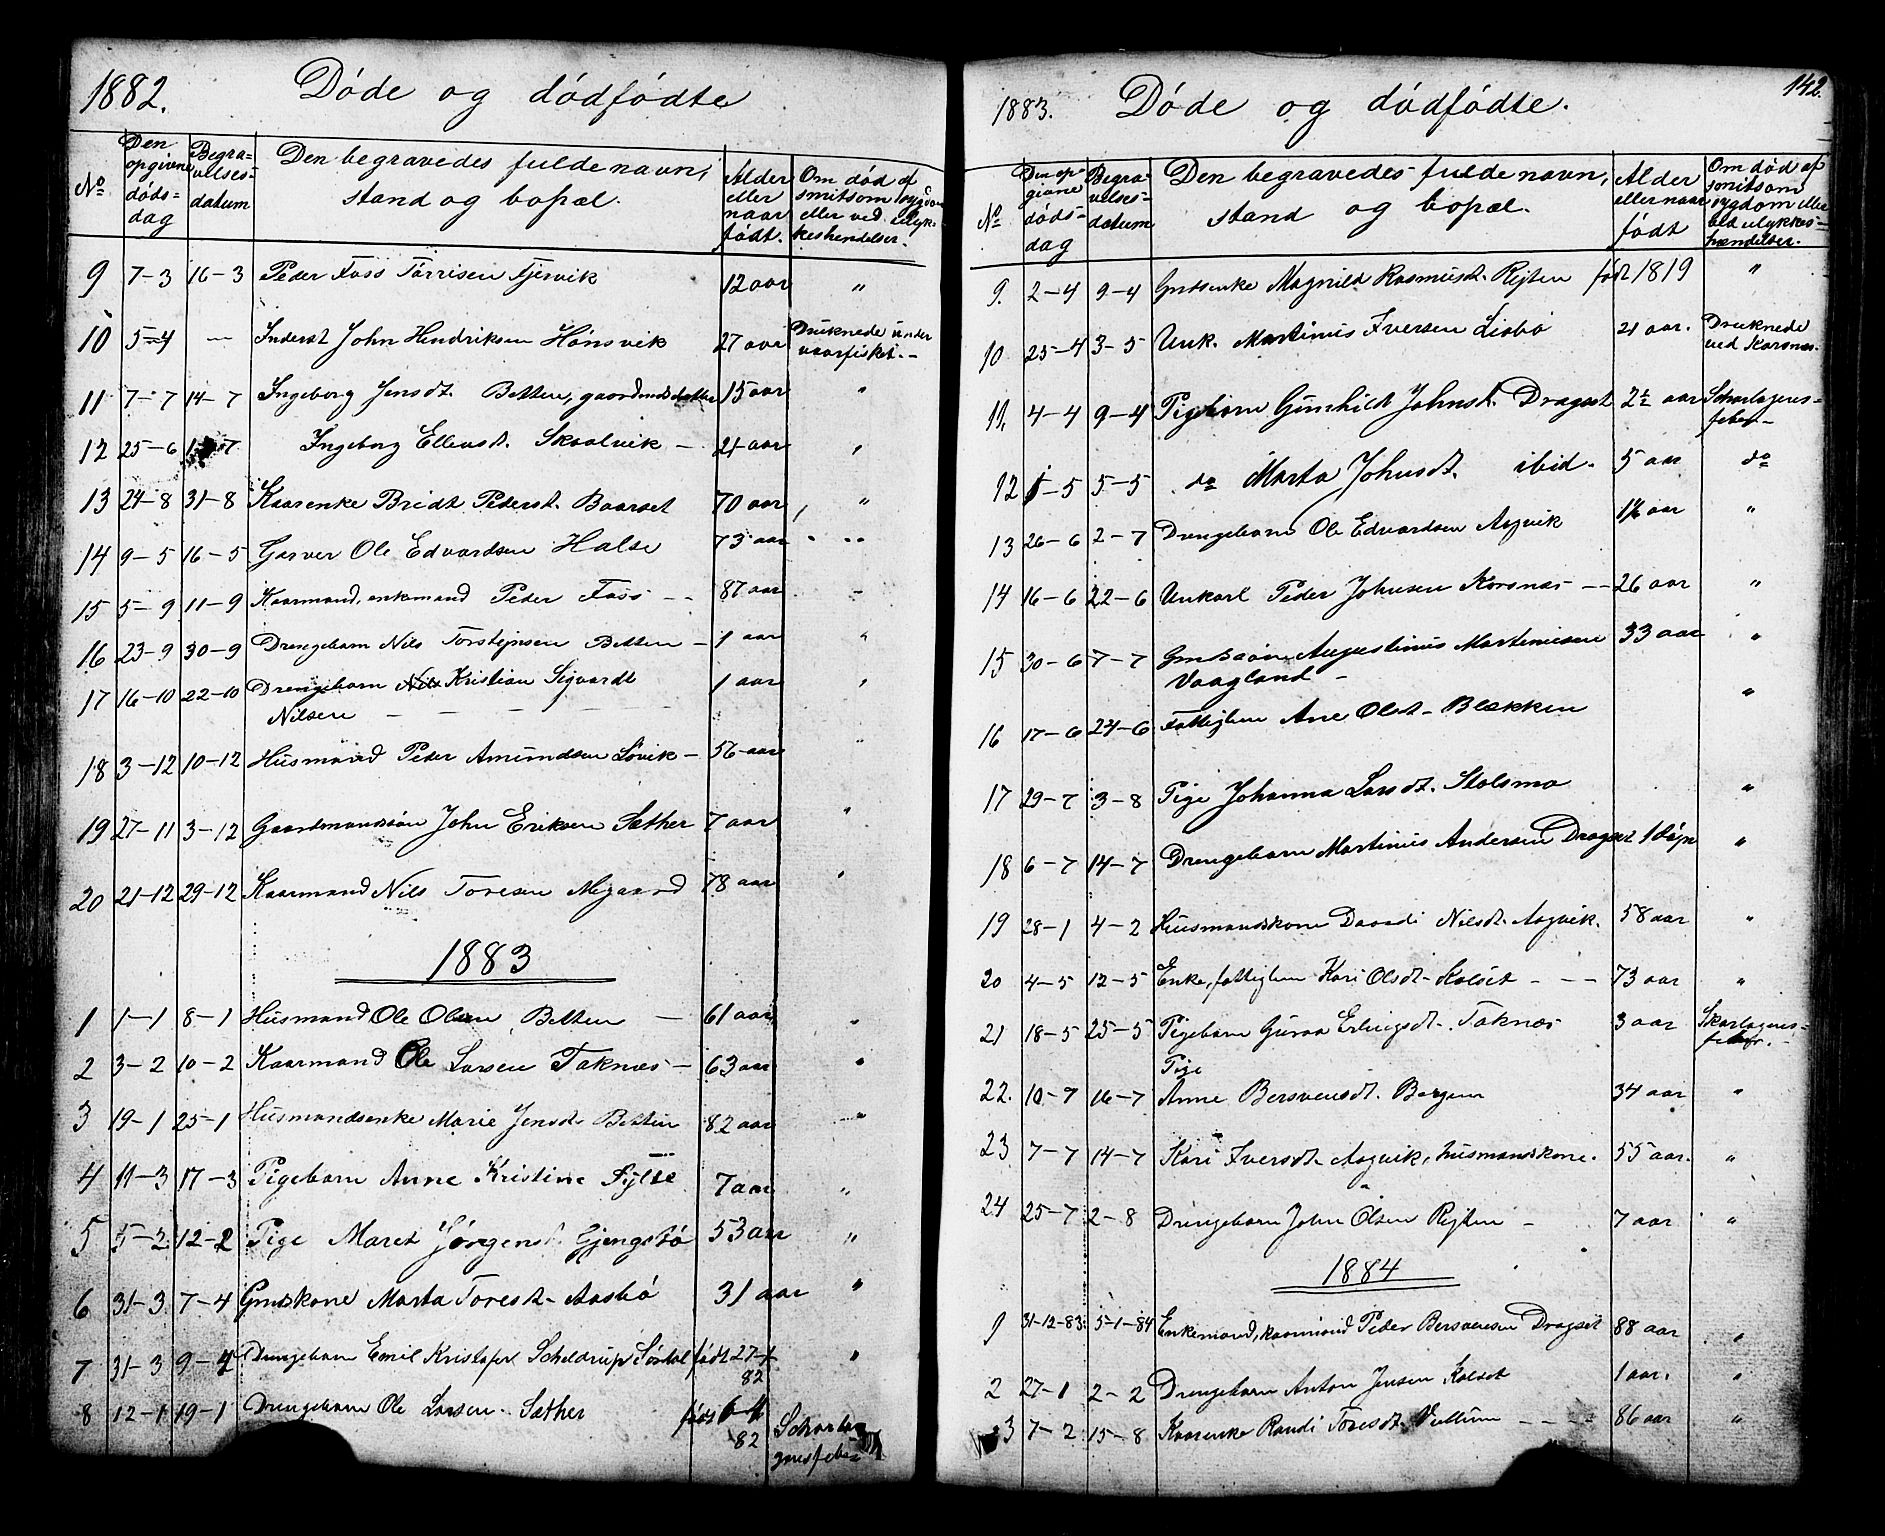 1882. Døde og dødfødte
No Den opgivne døds-dag Begra=velses=datum Den begravedes fulde navn, stand og bopæl. Alder eller naar født. Om død af smitsom sygdom eller ved ulyk=keshendelser.
9 7-3 16-3 Peder Foss Tørrisen Fjervik 12 aar "
10 5-4 — Inderst John Hendriksen Hønsvik 27 aar Druknede under vaarfisket.-
11 7-7 14-7 Ingeborg Jensdt. Betten, gaardmdsdatter 15 aar "
12 25-6 Ingeborg Ellensdt. Skaalvik — 21 aar "
13 24-8 31-8 Kaarenke Bridt Pedersdt. Baarset 70 aar "
14 9-5 16-5 Garver Ole Edvardsen Halse 73 aar "
15 5-9 11-9 Kaarmand, enkemand Peder Foss - - 87 aar -
16 23-9 30-9 Drengebarn Nils Torstejnsen Betten - 1 aar "
17 16-10 22-10 Drengebarn Nils Kristian Sigvardt 1 aar "
Nilsen — — — — — —
18 3-12 10-12 Husmand Peder Amundsen Løvik - 56 aar "
19 27-11 3-12 Gaardmandssøn John Eriksen Sæther 7 aar "
20 21-12 29-12 Kaarmand Nils Toresen Møgaard 78 aar "
1883
1 1-1 8-1 Husmand Ole Olsen Betten — 61 aar "
2 3-2 10-2 Kaarmand Ole Larsen Taknæs — 63 aar "
3 19-1 25-1 Husmandsenke Marie Jensdt. Betten 82 aar "
4 11-3 17-3 Pigebarn Anne Kristine Sylte 7 aar "
5 5-2 12-2 Pige Maret Jørgensdt. Gjengstø 53 aar "
6 31-3 7-4 Gmdskone Marta Toresdt. Aasbø 31 aar "
7 31-3 9-4 Drengebarn Emil Kristofer Scheldrup født 27-1 82 "
8 12-1 19-1 Drengebarn Ole Larsen Sæther født 6-4 82 Scharla=gensfeber

142.
1883. Døde og dødfødte.
No Den op=givne døds-dag Begra=velses=datum Den begravedes fulde navn, stand og bopæl. Alder eller naar født Om død af smitsom sygdom eller ved ulykkes=hændelser.
9. 2-4 9-4 Gmdsenke Magnild Rasmusdt. Rejten født 1819 "
10 25-4 3-5 Unk. Martinus Iversen Lisbø 21 aar. Druknede ved Korsnæs.
11. 4-4 9-4 Pigebarn Gunhild Johnsdt. Dragset 2½ aar Scharlagens=feber -
12 1-5 5-5 do Marta Johnsdt. ibid. 5 aar do
13 26-6 2-7 Drengebarn Ole Edvardsen Aagvik 1½ aar "
14 16-6 22-6 Unkarl Peder Johnsen Korsnæs — 26 aar "
15 30-6 7-7 Gmdssøn Augustinus Martinusen 33 aar "
Vaagland -
16 17-6 24-6 Fattiglem Ane Olsdt. Blekken "
17 29-7 3-8 Pige Johanna Larsdt. Stolsmo "
18 6-7 14-7 Drengebarn Martinus Andersen Dragset 1 døgn "
19 28-1 4-2 Husmandskone Daardi Nilsdt. Aagvik. 58 aar "
20 4-5 12-5 Enke, fattiglem Kari Olsdt. Kalset - - - 73 aar "
21 18-5 25-5 Pigebarn Guroa Erlingsdt. Taknæs 3 aar Skarlagens=feber. -
22. 10-7 16-7 Pige Anne Bersvensdt. Bergem 34 aar "
23 7-7 14-7 Kari Iversdt. Aagvik, husmandskone. 55 aar. "
24 25-7 2-8 Drengebarn John Olsen Rejten - 7 aar "
1884
1 31-12-83. 5-1-84 Enkemand, kaarmand Peder Bersvensen Dragset 88 aar "
2 27-1 2-2 Drengebarn Anton Jensen Kalset 1 aar. "
3 7-2 15-8 Kaarenke Randi Toresdt. Vullum - - - - 86 aar "